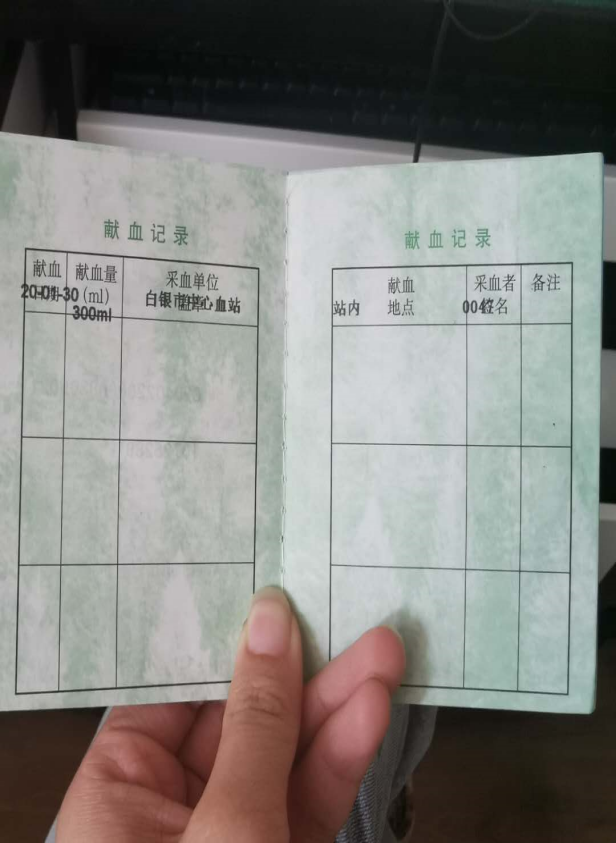 献血记录
献血 献血量 采血单位
20-01-30 (ml) 白银市中心血站
300ml
献血记录
献血 采血者 备注
站内 地点 签名